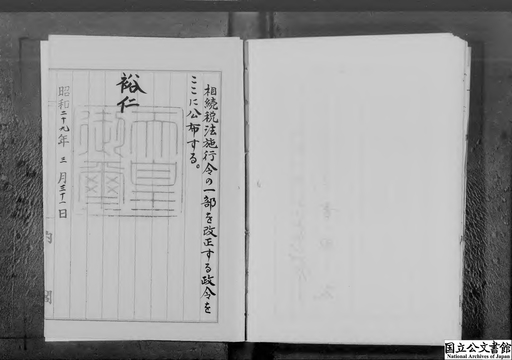 相続税法施行令の一部を改正する政令を
ここに公布する。
裕仁
天皇御璽
昭和二十九年三月三十一日
内閣
国立公文書館
National Archives of Japan